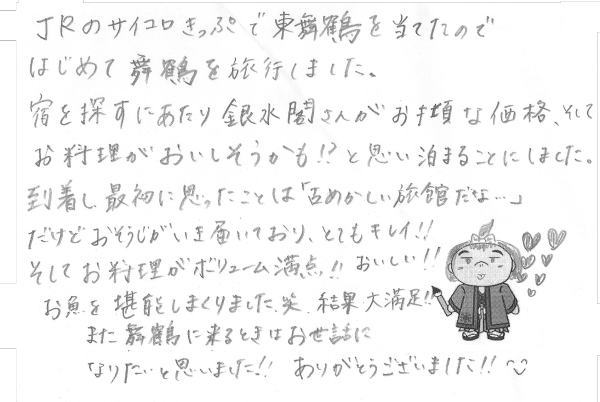 JRのサイコロきっぷで東舞鶴を当てたので
はじめて舞鶴を旅行しました。
宿を探すにあたり銀水閣さんがお手頃な価格、そして
お料理がおいしそうかも!?と思い泊まることにしました。
到着し最初に思ったことは「古めかしい旅館だな…」
だけどおそうじがいき届いており、とてもキレイ!!
そしてお料理がボリューム満点!! おいしい!!
お魚を堪能しまくりました笑 結果大満足!!
また舞鶴に来るときはお世話に
なりたいと思いました!! ありがとうございました!!